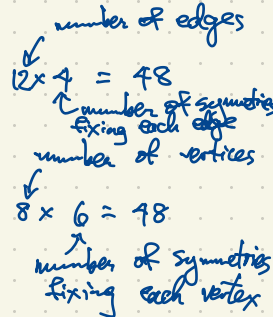 number of edges
12 × 4 = 48
number of symmetries
fixing each edge
number of vertices
8 × 6 = 48
number of symmetries
fixing each vertex